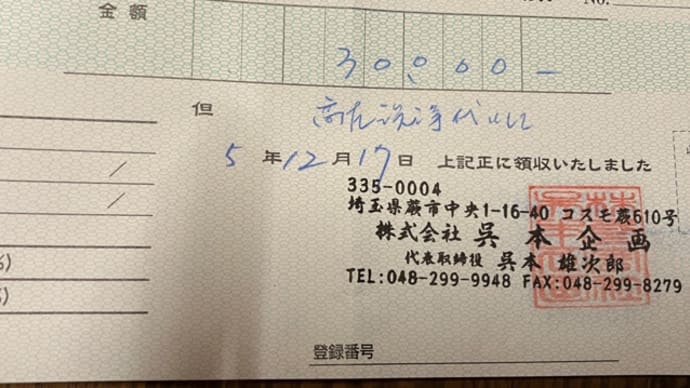 No.
金額 30,000-
但 高圧洗浄代として
5年12月17日 上記正に領収いたしました
335-0004
埼玉県蕨市中央1-16-40 コスモ蕨610号
株式会社 呉本企画
代表取締役 呉本 雄次郎
TEL:048-299-9948 FAX:048-299-8279
%)
%)
登録番号